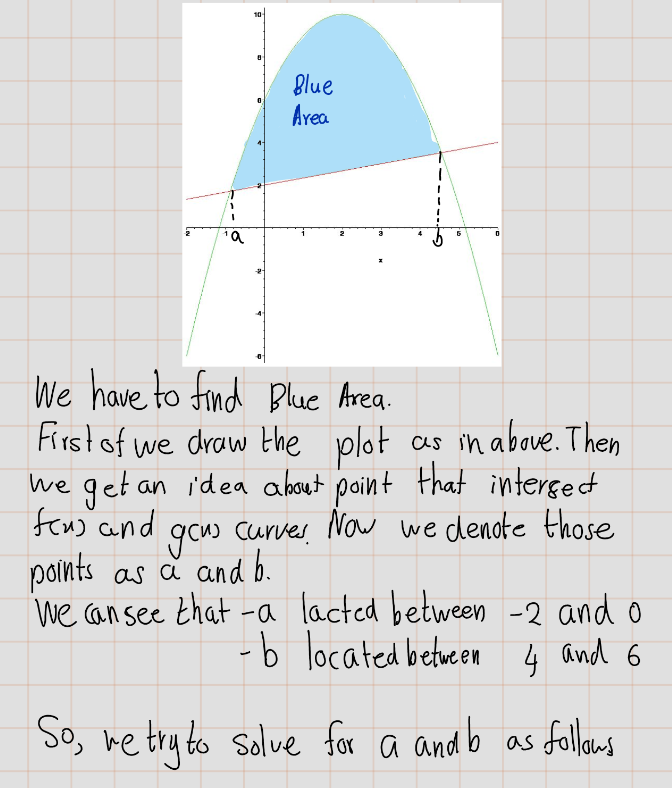 10
8
6
4
2
-2
-4
-6
-2 -1 1 2 3 4 5 6
x
Blue
Area
a
b
We have to find Blue Area.
First of we draw the plot as in above. Then
we get an idea about point that intersect
f(x) and g(x) curves. Now we denote those
points as a and b.
We can see that - a lacted between -2 and 0
- b located between 4 and 6
So, we try to solve for a and b as follows